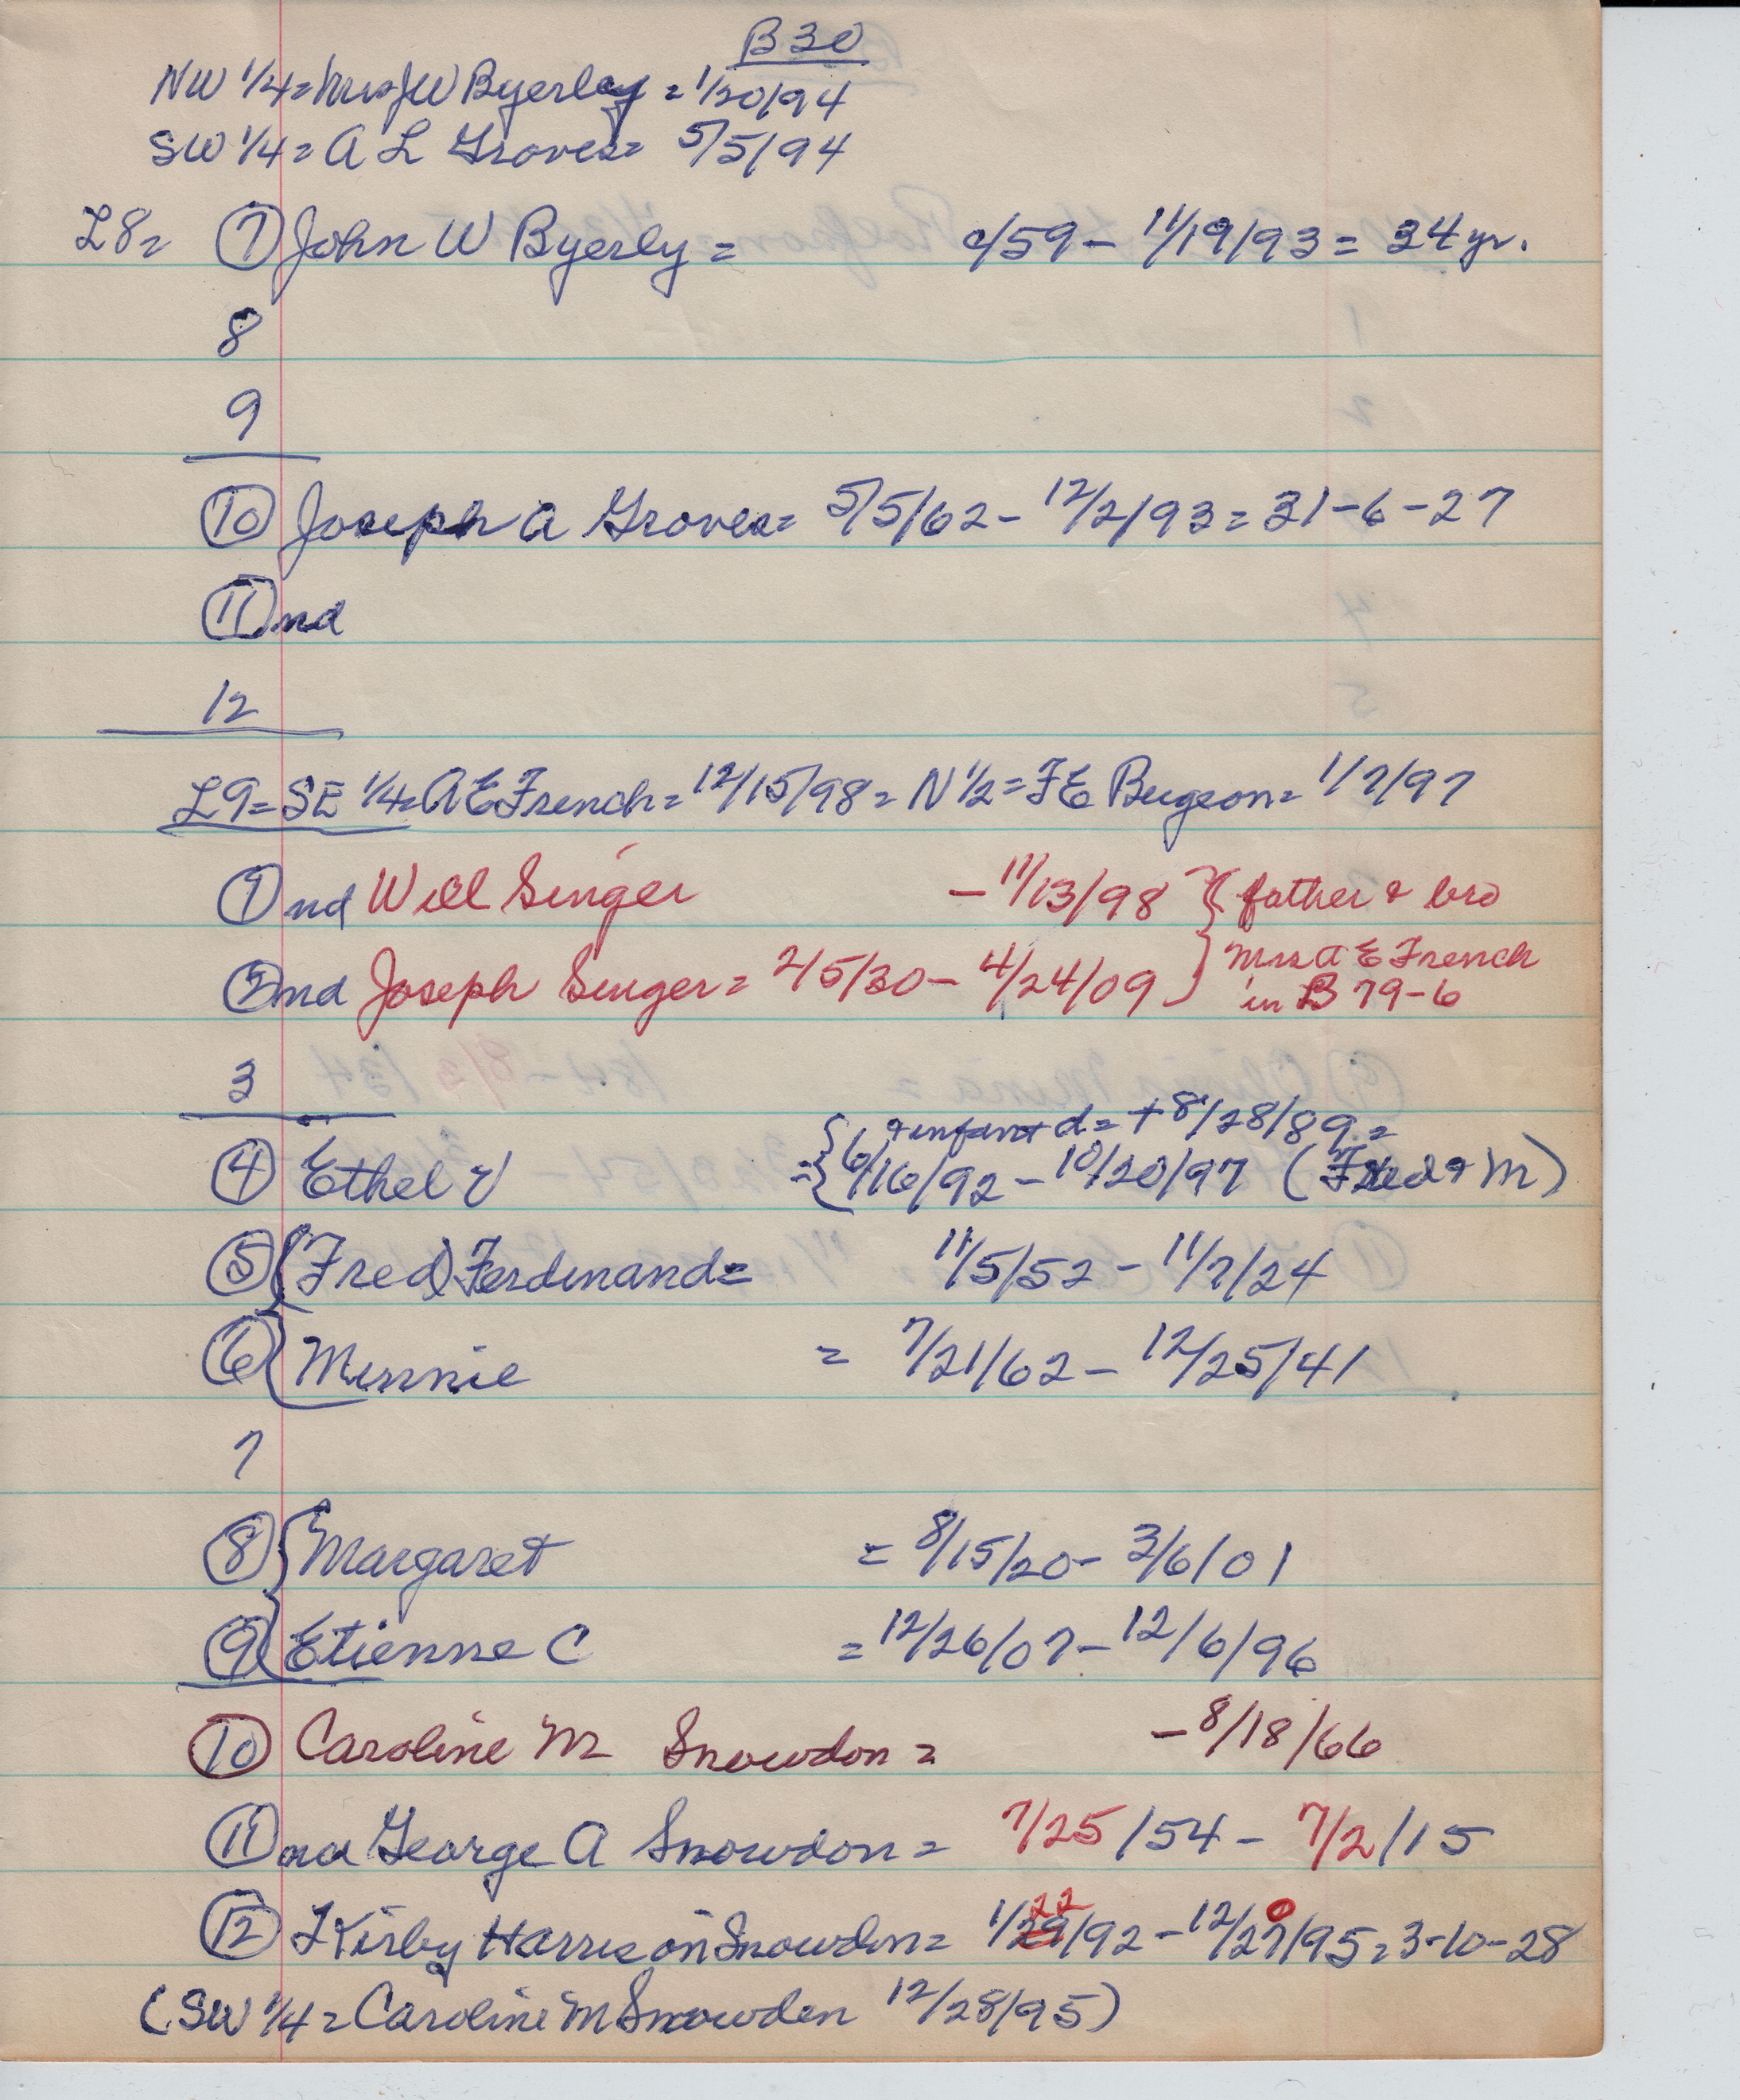 B 30
NW 1/4 = Mrs JW Byerley = 1/20/94
SW 1/4 = A L Groves = 5/5/94
L8 = 7 John W Byerly = c/59 - 11/19/93 = 34 yr.
8
9
10 Joseph A Groves = 5/5/62 - 12/2/93 = 31-6-27
11 nd
12
L9 = SE 1/4 = A E French = 12/15/98 = N 1/2 = F E Burgeon = 1/7/97
1 nd Will Singer - 11/13/98 } { father & bro
2 nd Joseph Singer = 2/5/30 - 4/24/09 } Mrs A E French
in B 79-6
3
+ infant d = + 8/28/89 =
4 Ethel V = { 6/16/92 - 10/20/97 (Fred & M)
5 { (Fred) Ferdinand = 11/5/52 - 11/7/24
6 { Minnie = 7/21/62 - 12/25/41
7
8 { Margaret = 8/15/20 - 3/6/01
9 { Etienne C = 12/26/07 - 12/6/96
10 Caroline M Snowdon = - 8/18/66
11 nd George A Snowdon = 7/25/54 - 7/2/15
22 0
12 Kirby Harrison Snowdon = 1/29/92 - 12/27/95 = 3-10-28
(SW 1/4 = Caroline M Snowden 12/28/95)